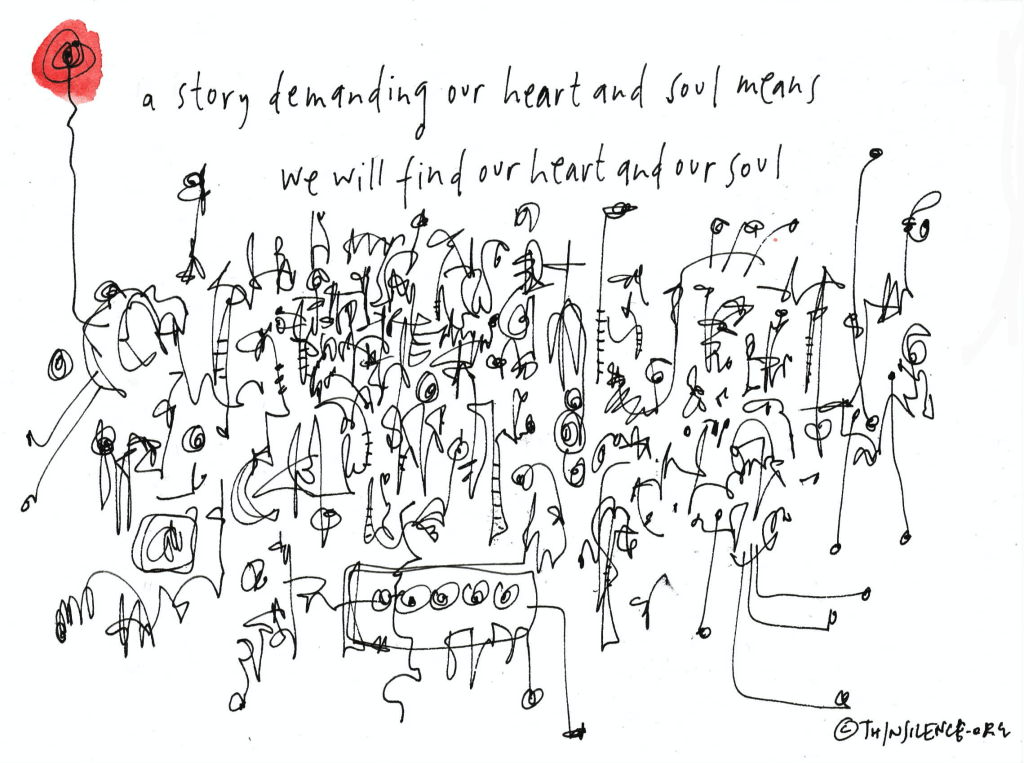 a story demanding our heart and soul means
we will find our heart and our soul
© THINSILENCE.ORG